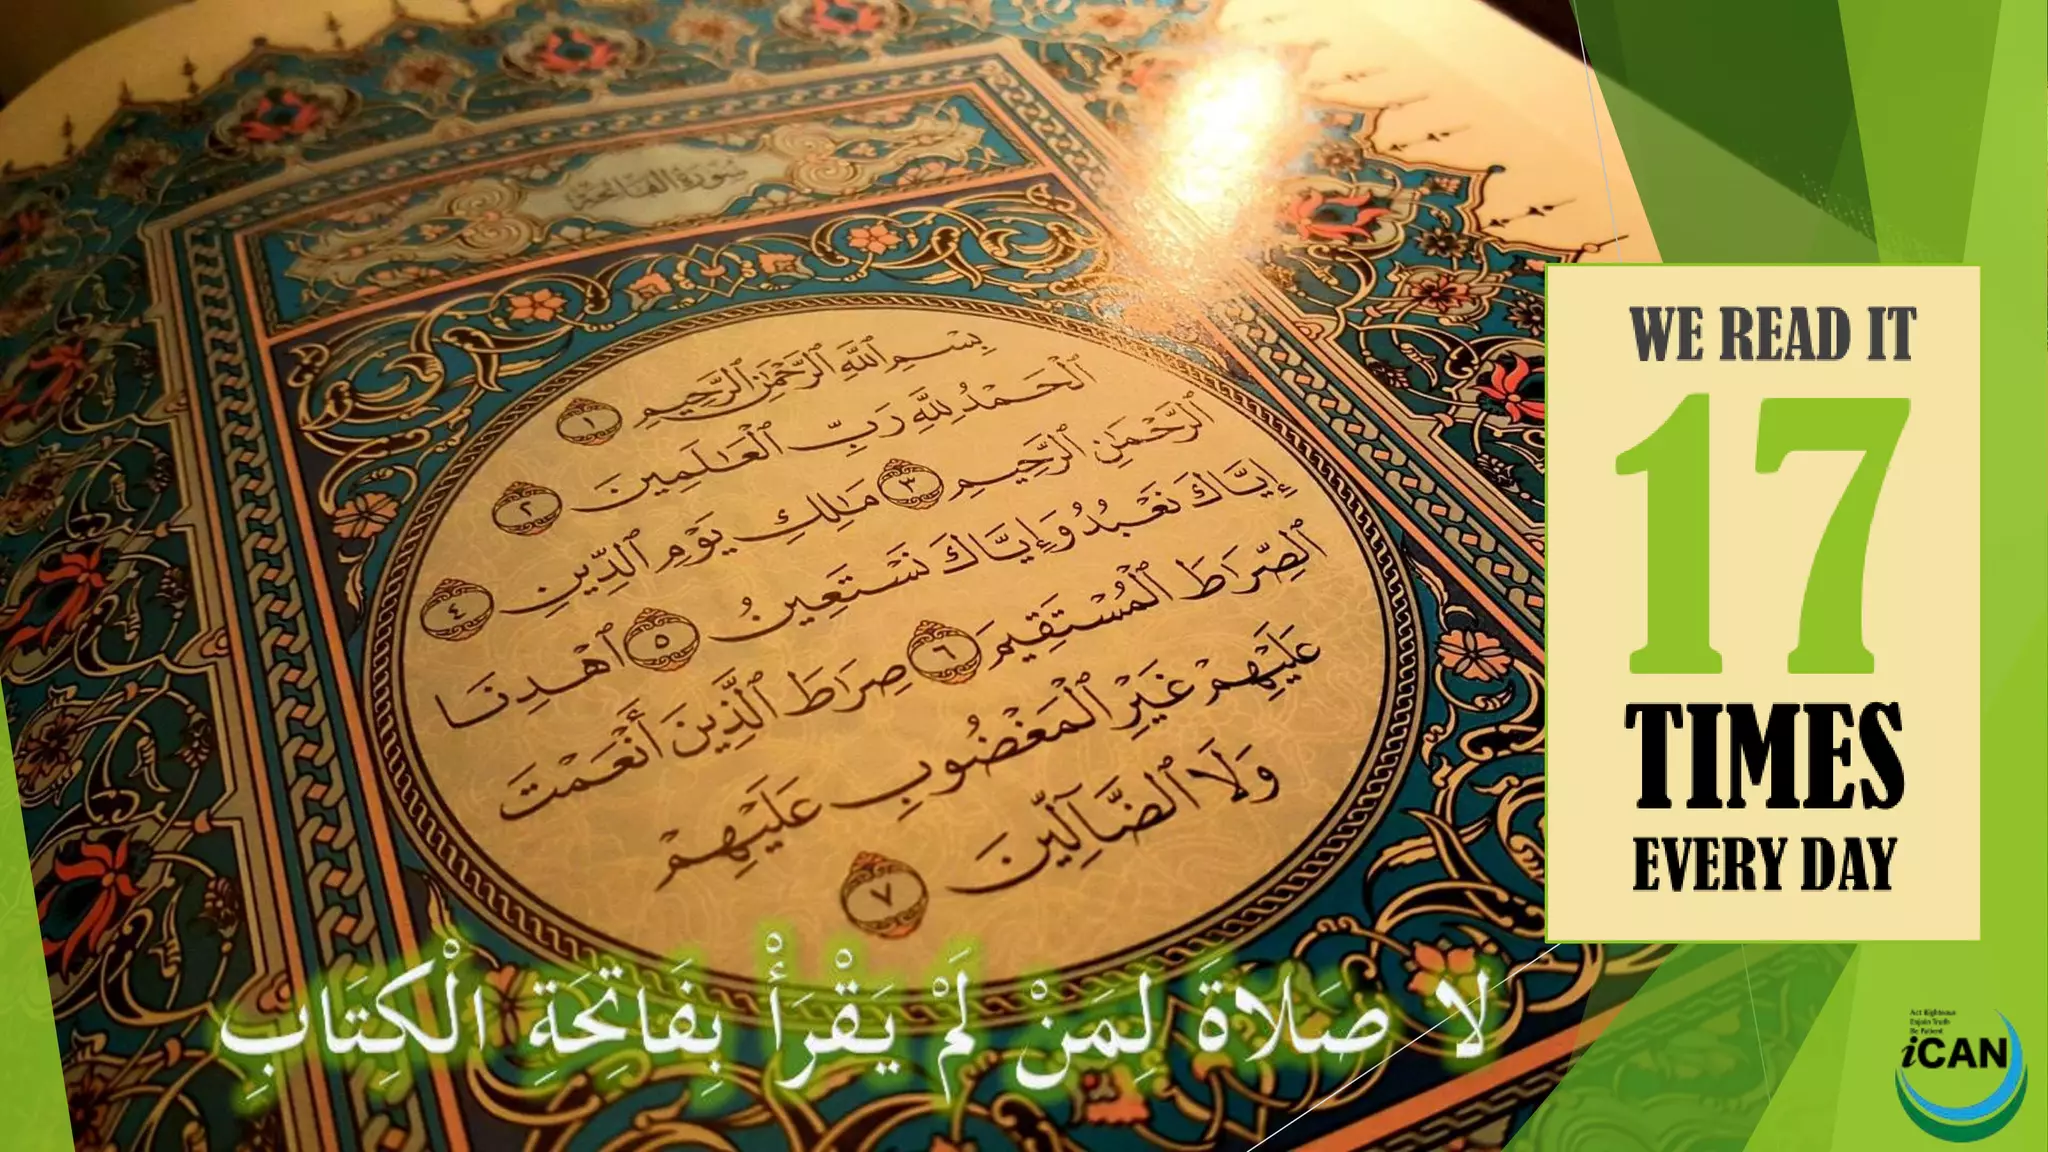 سُورَةُ الْفَاتِحَةِ
بِسْمِ ٱللَّهِ ٱلرَّحْمَٰنِ ٱلرَّحِيمِ ١
ٱلْحَمْدُ لِلَّهِ رَبِّ ٱلْعَٰلَمِينَ ٢
ٱلرَّحْمَٰنِ ٱلرَّحِيمِ ٣ مَٰلِكِ يَوْمِ ٱلدِّينِ ٤
إِيَّاكَ نَعْبُدُ وَإِيَّاكَ نَسْتَعِينُ ٥ ٱهْدِنَا
ٱلصِّرَٰطَ ٱلْمُسْتَقِيمَ ٦ صِرَٰطَ ٱلَّذِينَ أَنْعَمْتَ
عَلَيْهِمْ غَيْرِ ٱلْمَغْضُوبِ عَلَيْهِمْ
وَلَا ٱلضَّآلِّينَ ٧
لا صَلاةَ لِمَنْ لَمْ يَقْرَأْ بِفَاتِحَةِ الْكِتَابِ
WE READ IT
17
TIMES
EVERY DAY
Act Righteous
Enjoin Truth
Be Patient
iCAN